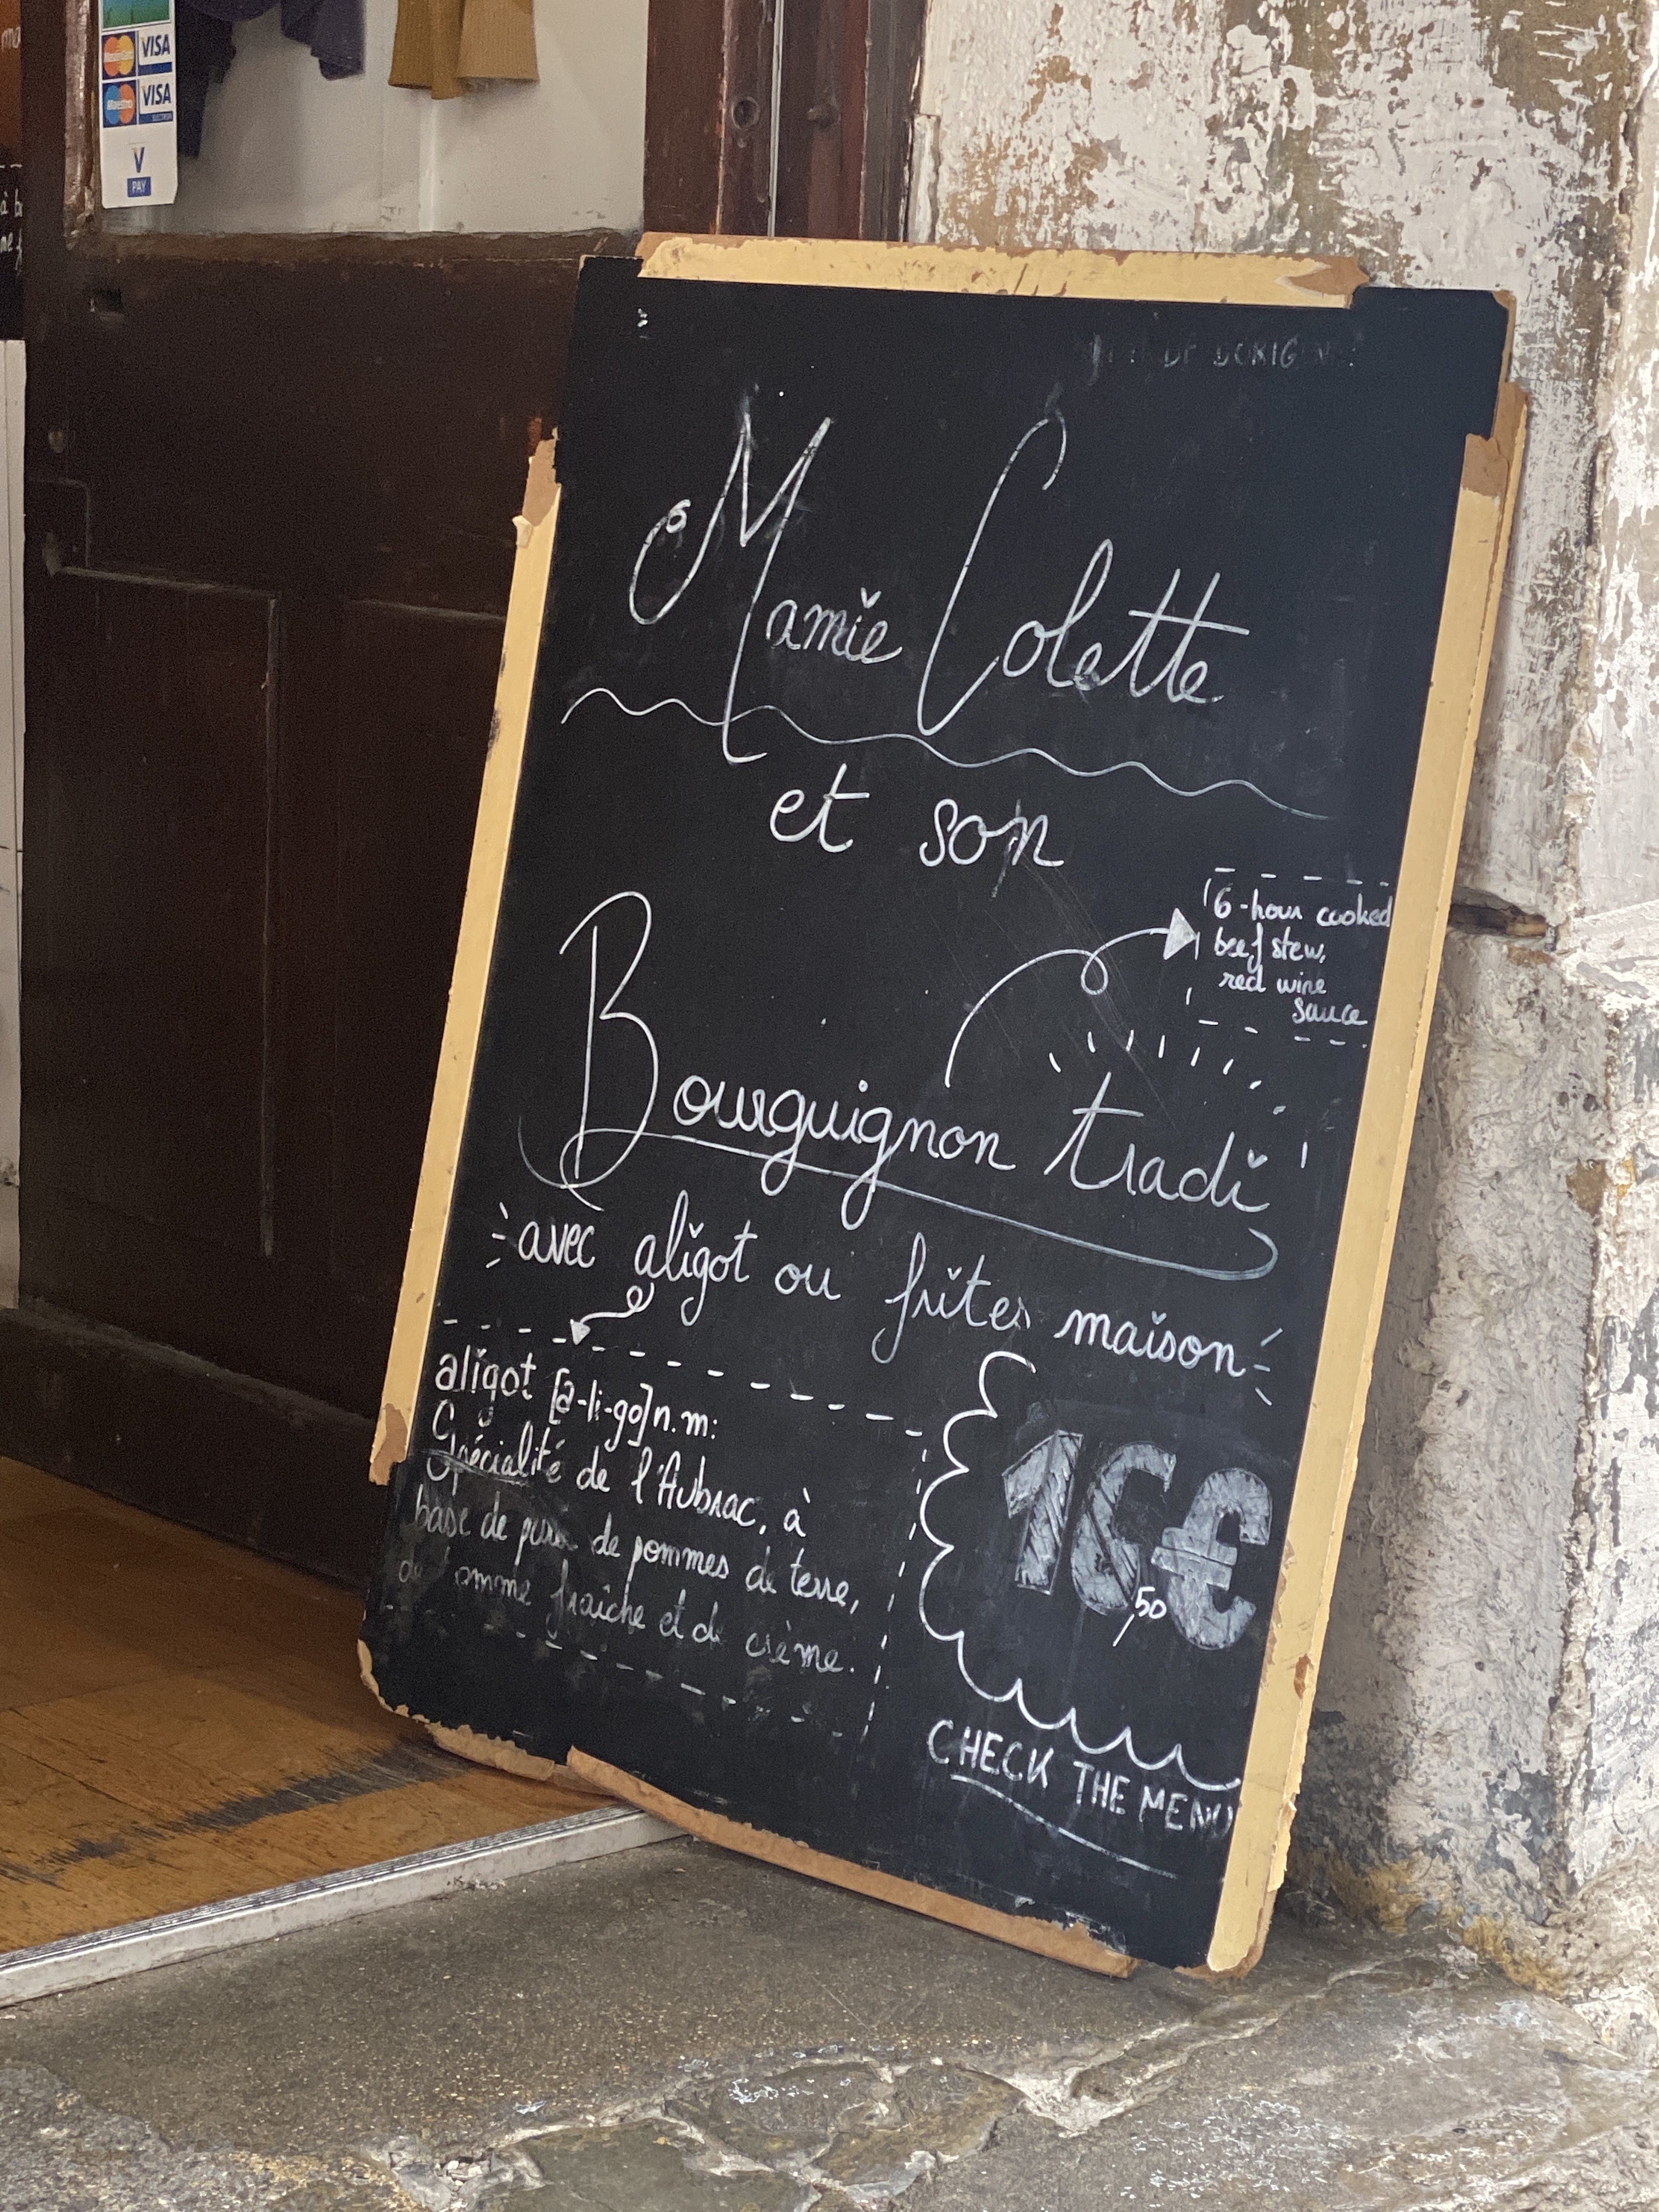 VISA
VISA
V
PAY
Mamie Colette
et son
6-hour cooked
beef stew,
red wine
sauce
Bourguignon tradi
avec aligot ou frites maison
aligot [a-li-go] n.m:
Spécialité de l'Aubrac, à
base de purée de pommes de terre,
de tomme fraîche et de crème.
16€
,50
CHECK THE MENU